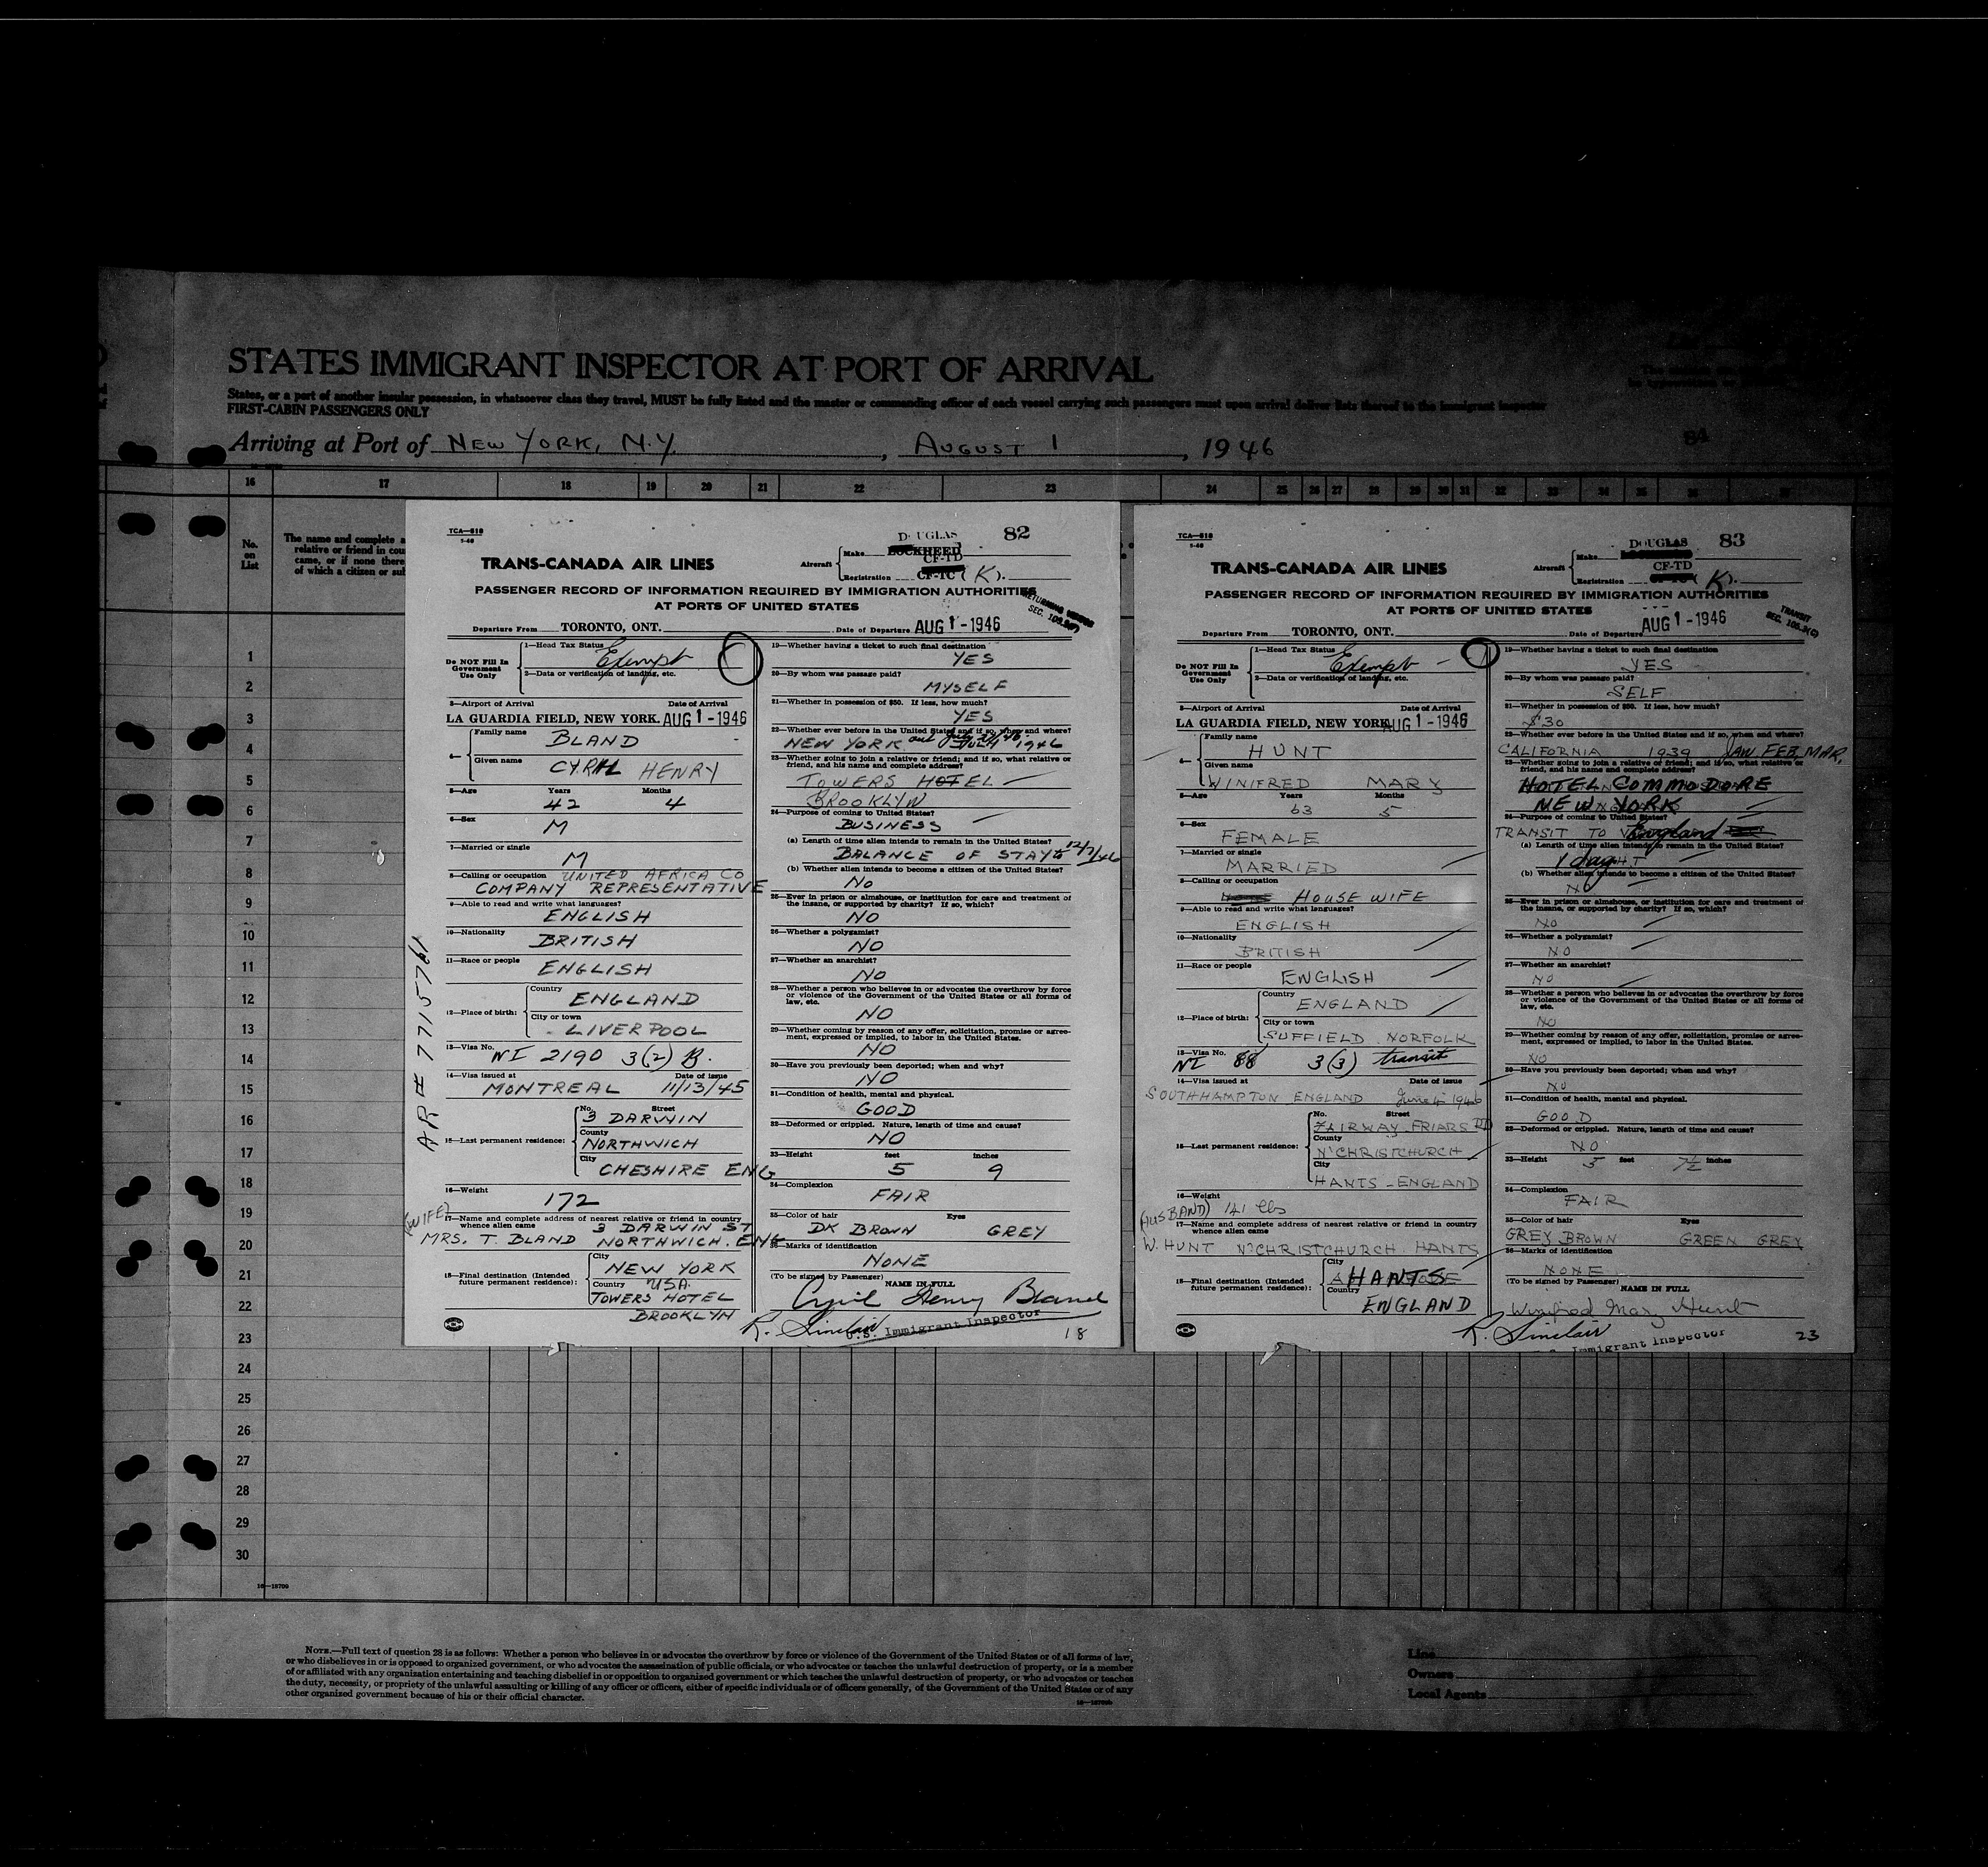 STATES IMMIGRANT INSPECTOR AT PORT OF ARRIVAL
States, or a part of another insular possession, in whatsoever class they travel, MUST be fully listed and the master or commanding officer of each vessel carrying such passengers must upon arrival deliver lists thereof to the immigrant inspector
FIRST-CABIN PASSENGERS ONLY
Arriving at Port of NEW YORK, N.Y. , AUGUST 1 , 1946
84
16 17 18 19 20 21 22 23 24 25 26 27 28 29 30 31 32 33 34 35
No. on List
The name and complete a
relative or friend in cou
came, or if none there
of which a citizen or sub
TCA—818
1-46
DOUGLAS 82
Aircraft Make LOCKHEED
CF-TD
Registration CF-TC (K).
TRANS-CANADA AIR LINES
PASSENGER RECORD OF INFORMATION REQUIRED BY IMMIGRATION AUTHORITIES
AT PORTS OF UNITED STATES
SEC. 105.3(F)
Departure From TORONTO, ONT. Date of Departure AUG 1-1946
Do NOT Fill In Government Use Only
1—Head Tax Status Exempt
2—Data or verification of landing, etc.
3—Airport of Arrival Date of Arrival
LA GUARDIA FIELD, NEW YORK. AUG 1-1946
4— Family name BLAND
Given name CYRIL HENRY
5—Age Years 42 Months 4
6—Sex M
7—Married or single M
8—Calling or occupation UNITED AFRICA CO
COMPANY REPRESENTATIVE
9—Able to read and write what languages?
ENGLISH
10—Nationality BRITISH
11—Race or people ENGLISH
12—Place of birth: Country ENGLAND
City or town LIVERPOOL
13—Visa No. NI 2190 3(2) B.
14—Visa issued at Date of issue
MONTREAL 11/13/45
15—Last permanent residence: No. Street 3 DARWIN
County NORTHWICH
City CHESHIRE ENG
16—Weight 172
(WIFE)
17—Name and complete address of nearest relative or friend in country whence alien came
3 DARWIN ST
MRS. T. BLAND NORTHWICH. ENG
18—Final destination (Intended future permanent residence): City NEW YORK
Country USA.
TOWERS HOTEL
BROOKLYN
AR# 7715761
19—Whether having a ticket to such final destination
YES
20—By whom was passage paid?
MYSELF
21—Whether in possession of $50. If less, how much?
YES
22—Whether ever before in the United States and if so, when and where?
NEW YORK JULY 1946
23—Whether going to join a relative or friend; and if so, what relative or friend, and his name and complete address?
TOWERS HOTEL
BROOKLYN
24—Purpose of coming to United States?
BUSINESS
(a) Length of time alien intends to remain in the United States?
BALANCE OF STAY to 12/7/46
(b) Whether alien intends to become a citizen of the United States?
NO
25—Ever in prison or almshouse, or institution for care and treatment of the insane, or supported by charity? If so, which?
NO
26—Whether a polygamist?
NO
27—Whether an anarchist?
NO
28—Whether a person who believes in or advocates the overthrow by force or violence of the Government of the United States or all forms of law, etc.
NO
29—Whether coming by reason of any offer, solicitation, promise or agreement, expressed or implied, to labor in the United States.
NO
30—Have you previously been deported; when and why?
NO
31—Condition of health, mental and physical.
GOOD
32—Deformed or crippled. Nature, length of time and cause?
NO
33—Height feet 5 inches 9
34—Complexion FAIR
35—Color of hair DK BROWN Eyes GREY
36—Marks of identification NONE
(To be signed by Passenger) NAME IN FULL
Cyril Henry Bland
R. Sinclair
U.S. Immigrant Inspector
18
TCA—818
1-46
DOUGLAS 83
Aircraft Make
CF-TD
Registration (K).
TRANS-CANADA AIR LINES
PASSENGER RECORD OF INFORMATION REQUIRED BY IMMIGRATION AUTHORITIES
AT PORTS OF UNITED STATES
TRANSIT
SEC. 105.3(C)
Departure From TORONTO, ONT. Date of Departure AUG 1-1946
Do NOT Fill In Government Use Only
1—Head Tax Status Exempt
2—Data or verification of landing, etc.
3—Airport of Arrival Date of Arrival
LA GUARDIA FIELD, NEW YORK AUG 1-1946
4— Family name HUNT
Given name WINIFRED MARY
5—Age Years 63 Months 5
6—Sex FEMALE
7—Married or single MARRIED
8—Calling or occupation HOUSE WIFE
9—Able to read and write what languages?
ENGLISH
10—Nationality BRITISH
11—Race or people ENGLISH
12—Place of birth: Country ENGLAND
City or town SUFFIELD NORFOLK
13—Visa No. NI 88 3(3) transit
14—Visa issued at Date of issue
SOUTHHAMPTON ENGLAND June 4 1946
15—Last permanent residence: No. Street FAIRWAY FRIARS RD
County N'CHRISTCHURCH
City HANTS - ENGLAND
16—Weight 141 lbs
(HUSBAND)
17—Name and complete address of nearest relative or friend in country whence alien came
W. HUNT N'CHRISTCHURCH HANTS
18—Final destination (Intended future permanent residence): City HANTS
Country ENGLAND
19—Whether having a ticket to such final destination
YES
20—By whom was passage paid?
SELF
21—Whether in possession of $50. If less, how much?
$30
22—Whether ever before in the United States and if so, when and where?
CALIFORNIA 1939 JAN, FEB, MAR,
23—Whether going to join a relative or friend; and if so, what relative or friend, and his name and complete address?
HOTEL COMMODORE
NEW YORK
24—Purpose of coming to United States?
TRANSIT TO England
(a) Length of time alien intends to remain in the United States?
1 day
(b) Whether alien intends to become a citizen of the United States?
NO
25—Ever in prison or almshouse, or institution for care and treatment of the insane, or supported by charity? If so, which?
NO
26—Whether a polygamist?
NO
27—Whether an anarchist?
NO
28—Whether a person who believes in or advocates the overthrow by force or violence of the Government of the United States or all forms of law, etc.
NO
29—Whether coming by reason of any offer, solicitation, promise or agreement, expressed or implied, to labor in the United States.
NO
30—Have you previously been deported; when and why?
NO
31—Condition of health, mental and physical.
GOOD
32—Deformed or crippled. Nature, length of time and cause?
NO
33—Height 5 feet 7½ inches
34—Complexion FAIR
35—Color of hair GREY BROWN Eyes GREEN GREY
36—Marks of identification NONE
(To be signed by Passenger) NAME IN FULL
Winifred Mary Hunt
R. Sinclair
Immigrant Inspector
23
1
2
3
4
5
6
7
8
9
10
11
12
13
14
15
16
17
18
19
20
21
22
23
24
25
26
27
28
29
30
16—18700
NOTE.—Full text of question 28 is as follows: Whether a person who believes in or advocates the overthrow by force or violence of the Government of the United States or of all forms of law,
or who disbelieves in or is opposed to organized government, or who advocates the assassination of public officials, or who advocates or teaches the unlawful destruction of property, or is a member
of or affiliated with any organization entertaining and teaching disbelief in or opposition to organized government or which teaches the unlawful destruction of property, or who advocates or teaches
the duty, necessity, or propriety of the unlawful assaulting or killing of any officer or officers, either of specific individuals or of officers generally, of the Government of the United States or of any
other organized government because of his or their official character.
Line
Owners
Local Agents